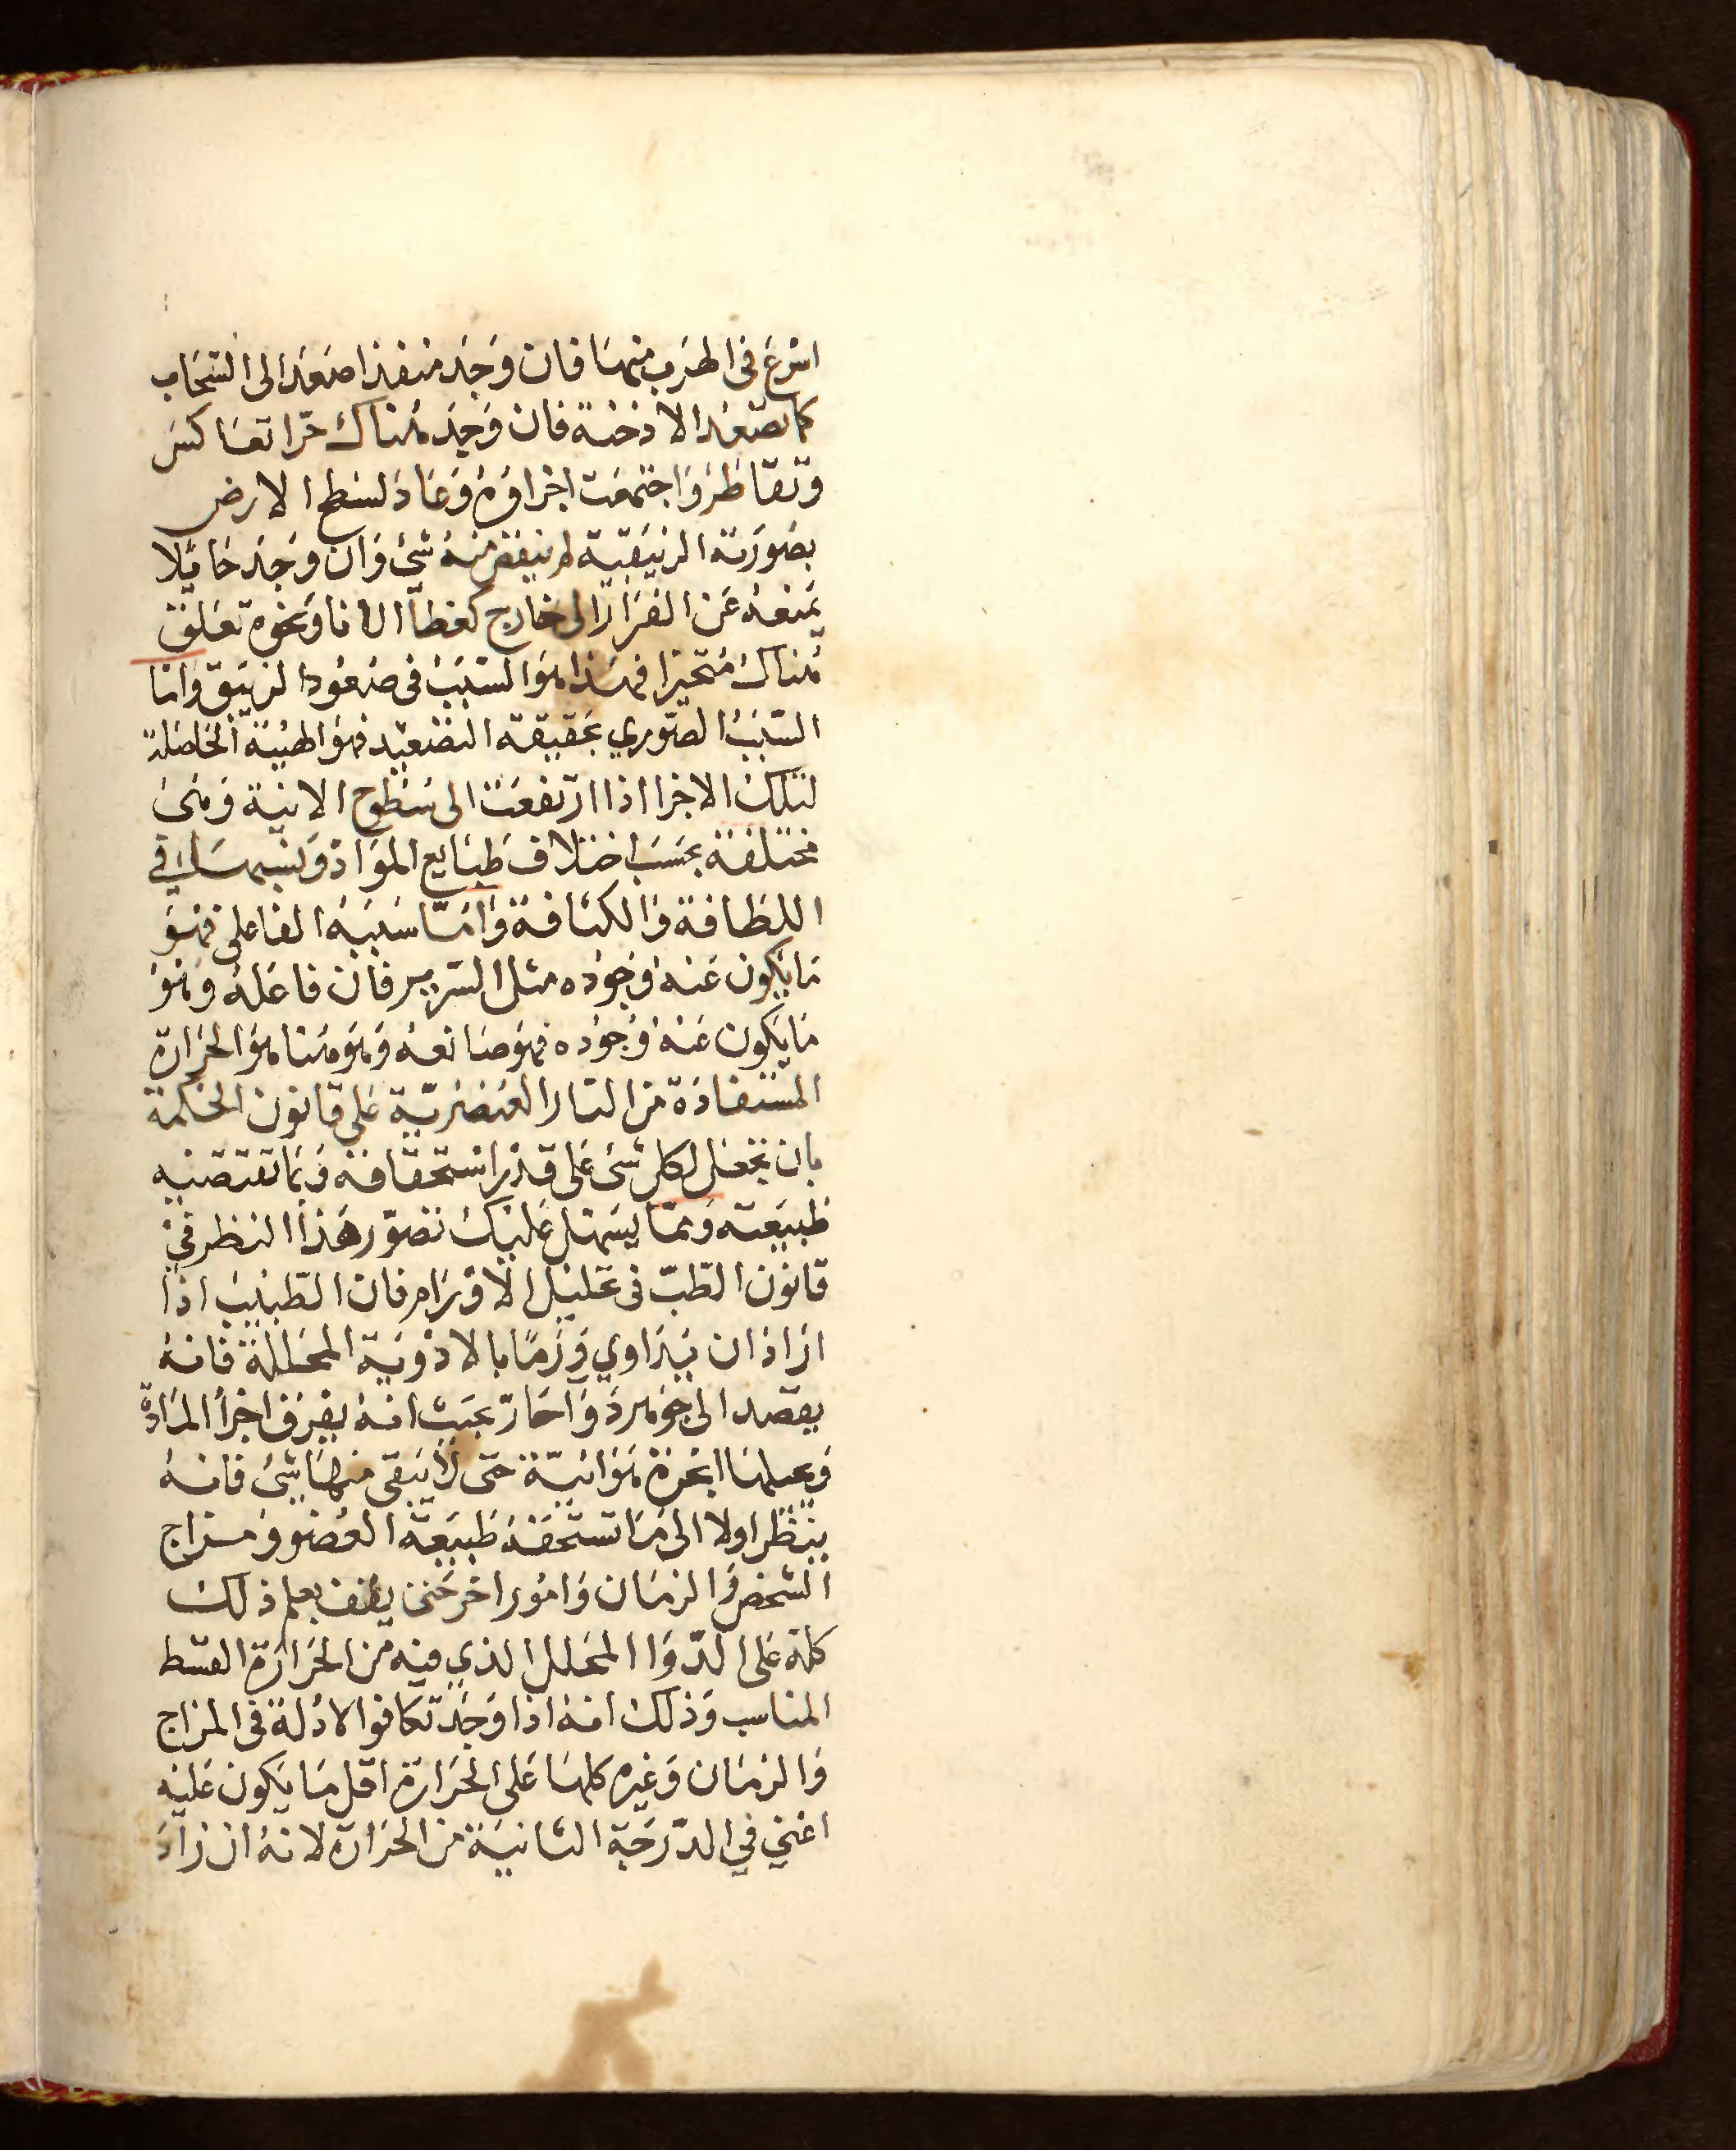 اشرع فى الهرب منها فان وجد منفذا صعد الى السحاب
كما تصعد الادخنة فان وجد هناك حرا تعاكس
وتقاطر واجتمعت اجزاوه وعاد لسطح الارض
بصورته الزيبقية لم ينقض منه شئ وان وجد حايلا
يمنعه عن الفرار الى خارج كغطا الانا ونحوه تعلق
هناك متحيزا فهذا هو السبب فى صعود الزيبق واما
السبب الصوري بحقيقة التصعيد فهو الهيئة الحاصلة
لتلك الاجزا اذا ارتفعت الى سطوح الانية وهى
مختلفة بحسب اختلاف طبايع المواد ونسبها في
اللطافة والكثافة واما سببه الفاعلى فهو
ما يكون عنه وجوده مثل السرير فان فاعله وهو
ما يكون عنه وجوده فهو صانعه وهو هنا هو الحرارة
المستفادة من النار العنصرية على قانون الحكمة
بان تجعل لكل شى على قدر استحقاقه وبما تقتضيه
طبيعته ومما يسهل عليك تصور هذا النظر في
قانون الطب فى تحليل الاورام فان الطبيب اذا
اراد ان يداوي ورما بالادوية المحللة فانه
يقصد الى جوهر دوا حار بحيث انه يفرق اجزأ المادة
وبجعلها ابخرة هوائية حتى لا يبقى منها شئ فانه
ينظر اولا الى ما تستحقه طبيعة العضو ومزاج
الشخص والزمان وامور اخر حتى يقف بعلم ذلك
كله على الدوا المحلل الذي فيه من الحرارة القسط
المناسب وذلك انه اذا وجد تكافوا الادلة فى المزاج
والزمان وغيره كلها على الحرارة اقل ما يكون عليه
اعني في الدرجة الثانية من الحرارة لانه ان زاد